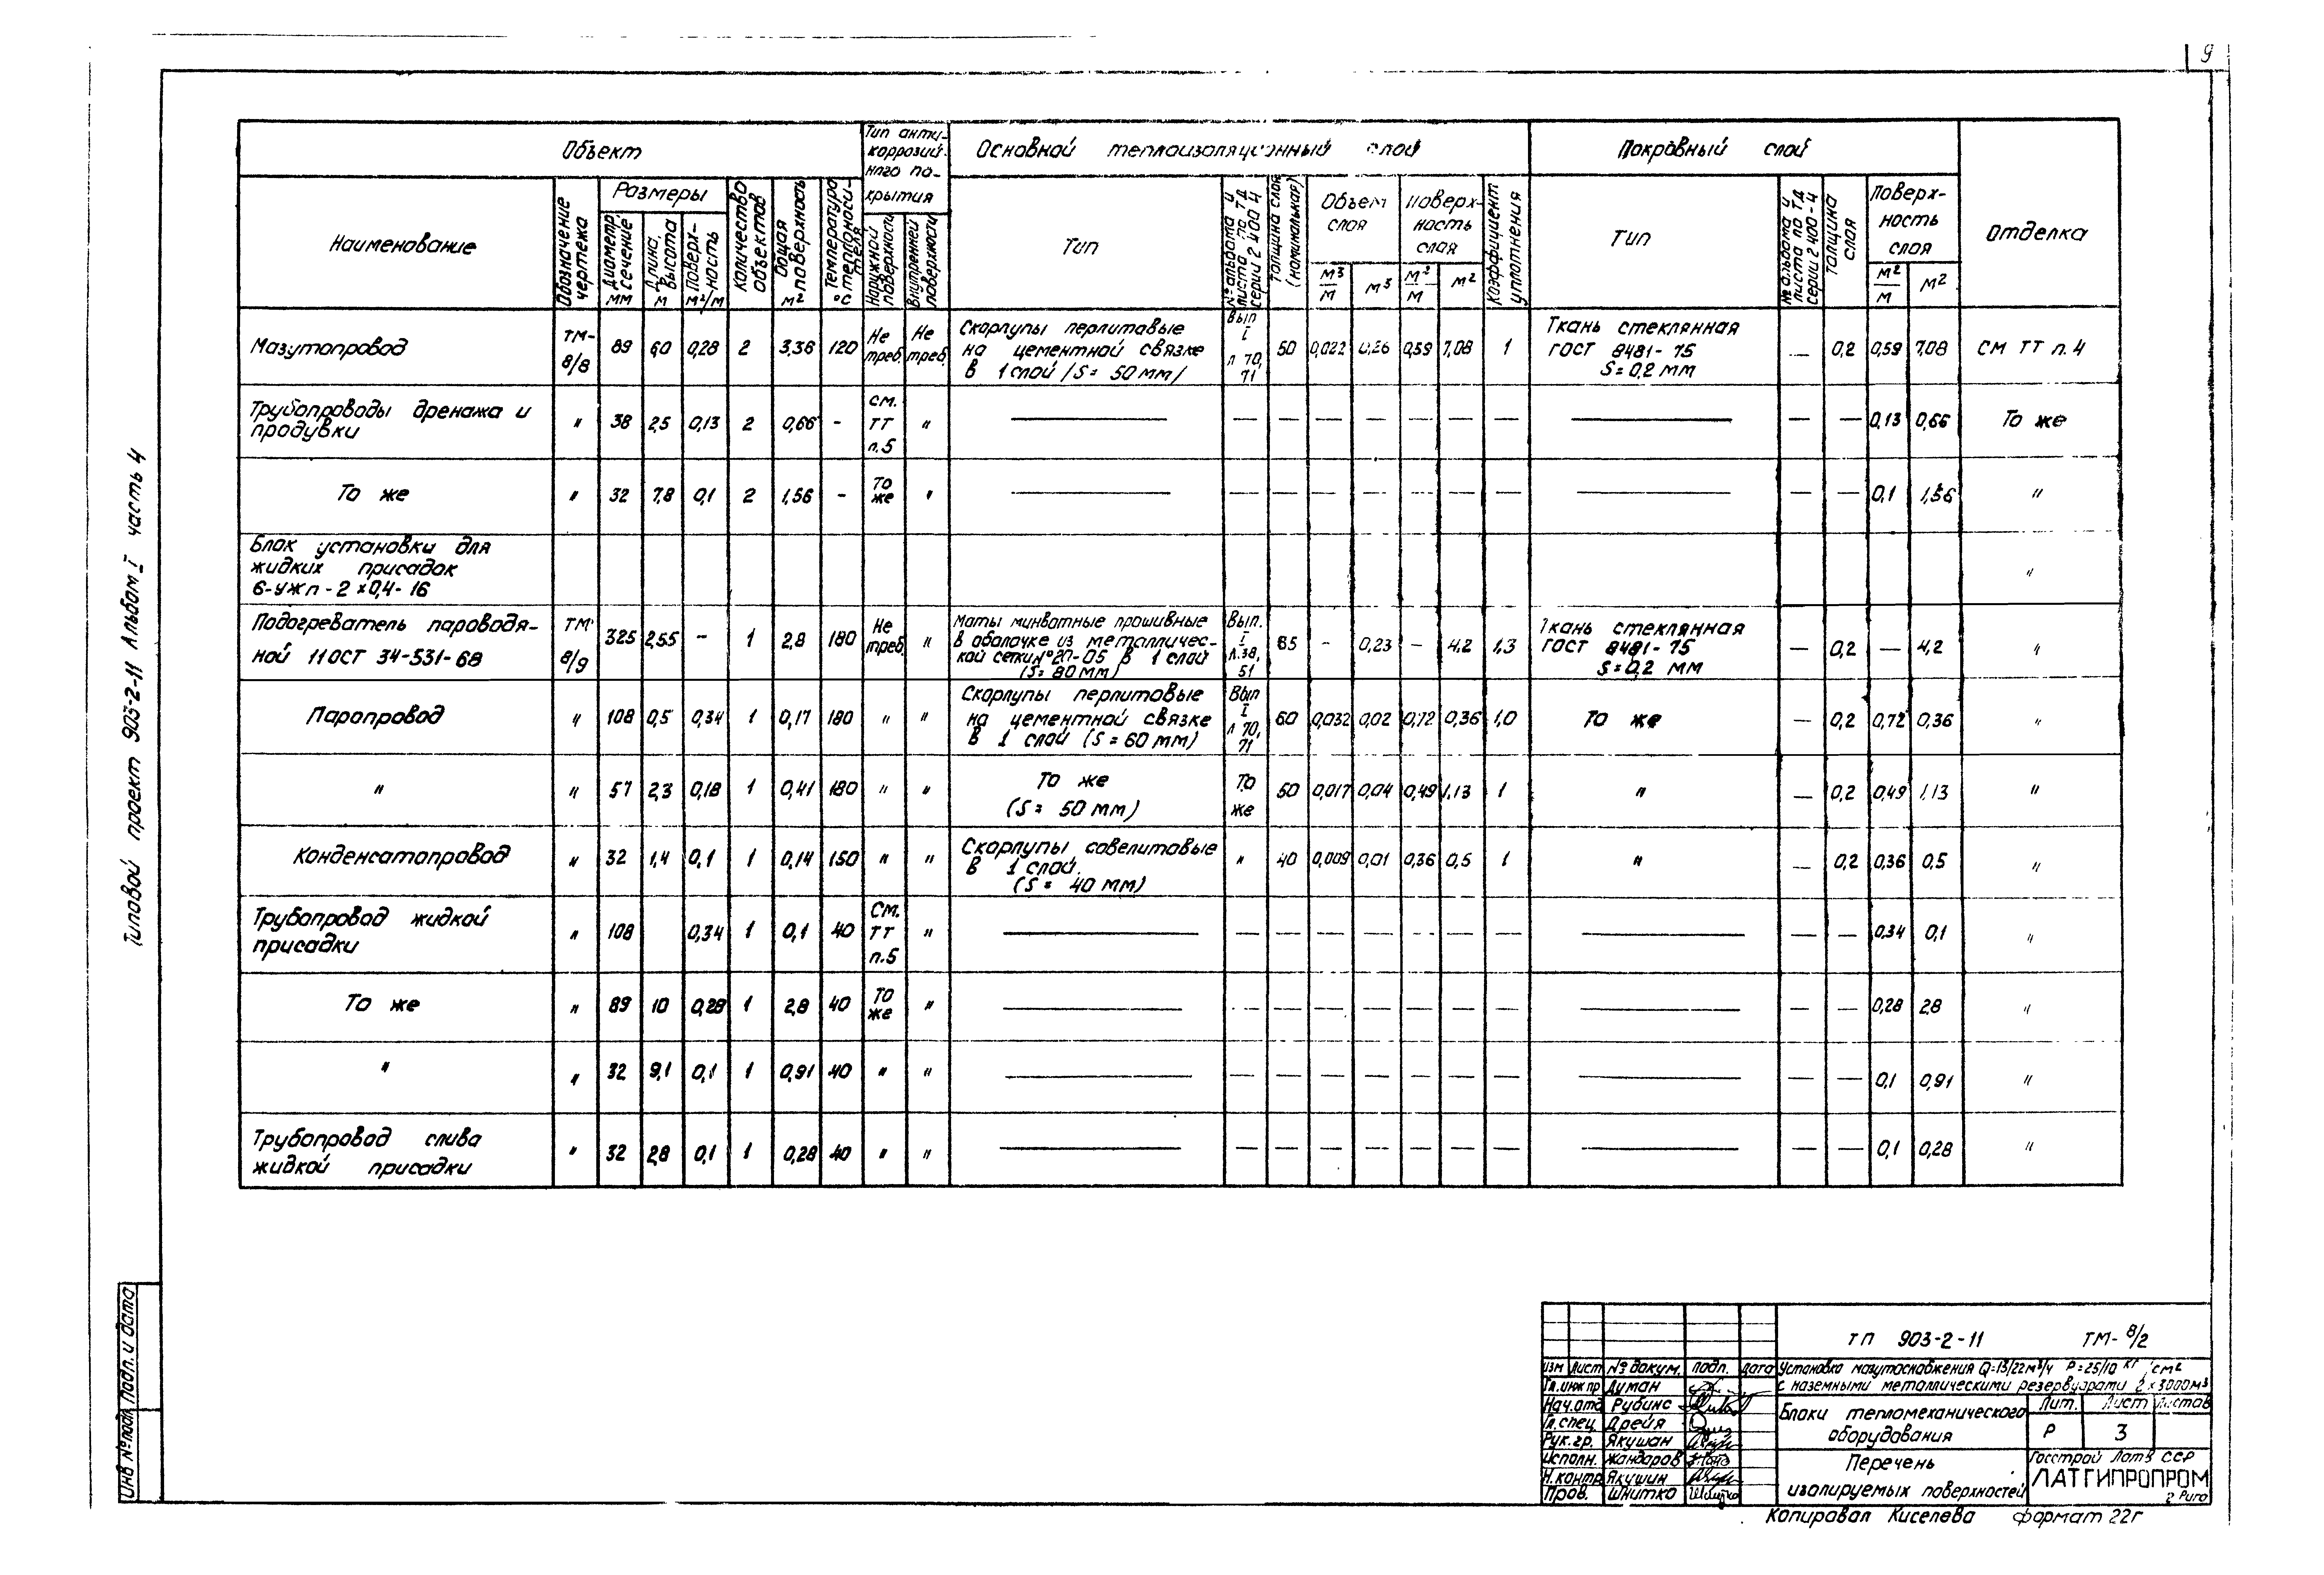 9
Типовой проект 903-2-11 Альбом I часть 4
Объект
Тип анти-
коррозий-
ного по-
крытия
Основной теплоизоляционный слой
Покровный слой
Отделка
Наименование
Обозначение чертежа
Размеры
Диаметр, сечение мм
Длина, высота м
Поверх-ность м²/м
Количество объектов
Общая поверхность м²
Температура теплоноси-теля °С
Наружной поверхности
Внутренней поверхности
Тип
№ альбома и листа по ТД серии 2 400 4
Толщина слоя (номинальная)
Объем слоя
м³/м м³
Поверх-ность слоя
м²/м м²
Коэффициент уплотнения
Тип
№ альбома и листа по ТД серии 2 400-4
Толщина слоя
Поверх-ность слоя
м²/м м²
Мазутопровод ТМ-8/8 89 60 0,28 2 3,36 120 Не треб. Не треб. Скорлупы перлитовые на цементной связке в 1 слой /S= 50 мм/ Вып I л 70, 71 50 0,022 0,26 0,59 7,08 1 Ткань стеклянная ГОСТ 8481-75 S=0,2 мм — 0,2 0,59 7,08 СМ ТТ п. 4
Трубопроводы дренажа и продувки " 38 2,5 0,13 2 0,66 - см. ТТ п.5 " — — — — — — — — — — — 0,13 0,66 То же
То же " 32 7,8 0,1 2 1,56 - То же " — — — — — — — — — — — 0,1 1,56 "
Блок установки для
жидких присадок
6-УЖП-2×0,4-16 "
Подогреватель пароводя-ной 11 ОСТ 34-531-68 ТМ 8/9 325 2,55 - 1 2,8 180 Не треб. " Маты минватные прошивные в оболочке из металличес-кой сетки №20-05 в 1 слой (S= 80 мм) Вып. I л.38, 51 65 - 0,23 — 4,2 1,3 Ткань стеклянная ГОСТ 8481-75 S=0,2 мм — 0,2 — 4,2 "
Паропровод " 108 0,5 0,34 1 0,17 180 " " Скорлупы перлитовые на цементной связке в 1 слой (S = 60 мм) Вып I л 70, 71 60 0,032 0,02 0,72 0,36 1,0 То же — 0,2 0,72 0,36 "
" " 57 2,3 0,18 1 0,41 180 " " То же (S= 50 мм) То же 50 0,017 0,04 0,49 1,13 1 " — 0,2 0,49 1,13 "
Конденсатопровод " 32 1,4 0,1 1 0,14 150 " " Скорлупы совелитовые в 1 слой. (S= 40 мм) " 40 0,009 0,01 0,36 0,5 1 " — 0,2 0,36 0,5 "
Трубопровод жидкой присадки " 108 0,34 1 0,1 40 См. ТТ п.5 " — — — — — — — — — — — 0,34 0,1 "
То же " 89 10 0,28 1 2,8 40 То же " — — — — — — — — — — — 0,28 2,8 "
" " 32 9,1 0,1 1 0,91 40 " " — — — — — — — — — — — 0,1 0,91 "
Трубопровод слива жидкой присадки " 32 2,8 0,1 1 0,28 40 " " — — — — — — — — — — — 0,1 0,28 "
Инв № подл. Подп. и дата
ТП 903-2-11 ТМ-8/2
Изм Лист № докум. Подп. Дата
Установка мазутоснабжения Q=13/22 м³/ч Р=25/10 кг/см²
с наземными металлическими резервуарами 2×3000 м³
Гл.инж.пр Думан
Нач.отд Рубинс
Гл.спец. Дрейя
Рук.гр. Якушан
Исполн. Жандаров
Н.контр Якушин
Пров. Шнитко
Блоки тепломеханического
оборудования
Лит. Лист Листов
Р 3
Перечень
изолируемых поверхностей
Госстрой Латв ССР
ЛАТГИПРОПРОМ
г Рига
Копировал Киселева формат 22г